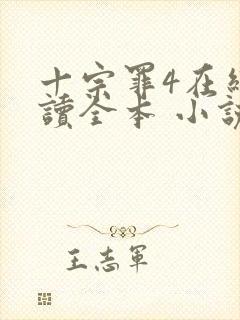 十宗罪4在線
讀全本 小說
王志軍